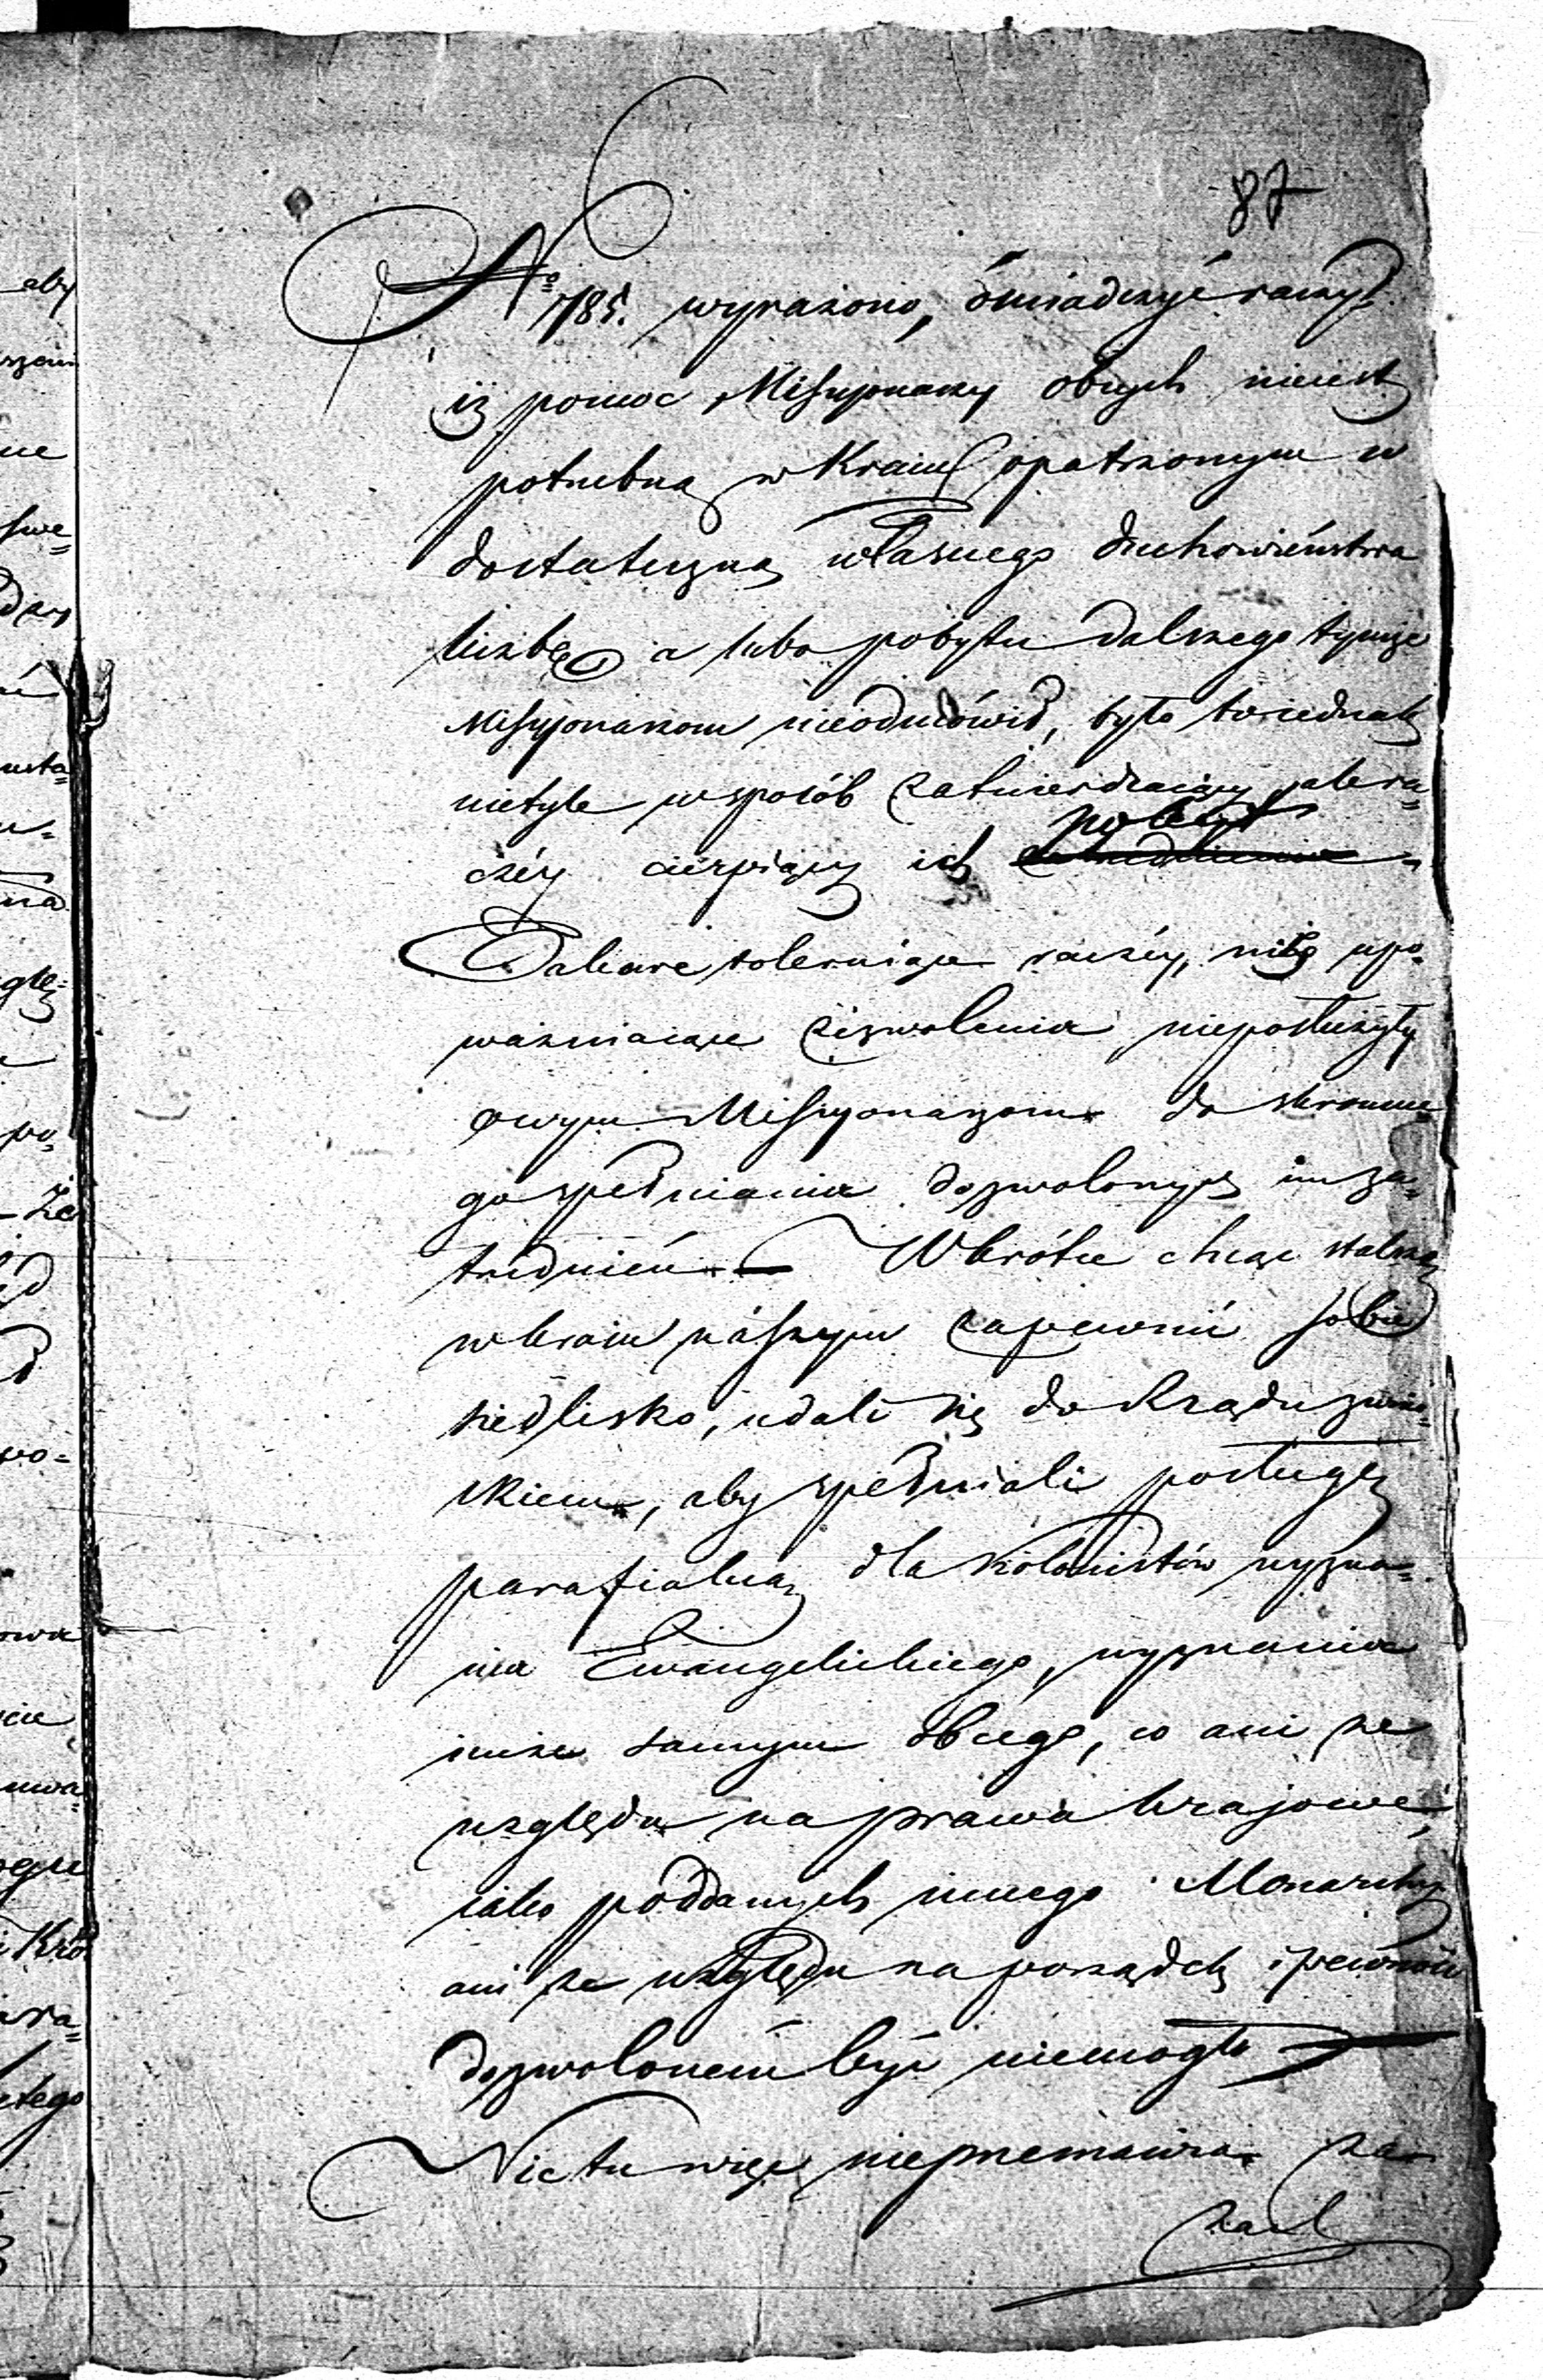 87
No 785. wyrażono, oświadczyć raczył
iż pomoc Missyonarzy obcych nieiest
potrzebną w Kraiu opatrzonym w
dostateczną własnego duchowieństwa
liczbę a lubo pobytu dalszego tymże
Missyonarzom nieodmówił, było to iednak
nietyle w sposób zatwierdzaiący ale ra=
czéy cierpiący ich pobyt
Takowe toleruiące raczéy, niż upo=
ważniaiące zezwolenia nieposłużyły
owym Missyonarzom do skromne
go spełniania dozwolonych im za=
trudnień — Wkrótce chcąc stalsze
w kraiu nászym zapewnić sobie
siedlisko, udali się do Rządu z wnio=
skiem, aby spełniali posługę
parafialną dla kolonistów wyzna=
nia Ewangelickiego, wyznania
imże samym obcego, co ani ze
względu na prawa krajowe,
iako poddanych innego Monarchy
ani ze względu na porządek i pewność
dozwoloném być niemogło
Nic tu więc nieprzemawia za
zasl
aby
ne
swe=
usta=
na
glę=
po=
Że
wo=
Kró
ra=
tego